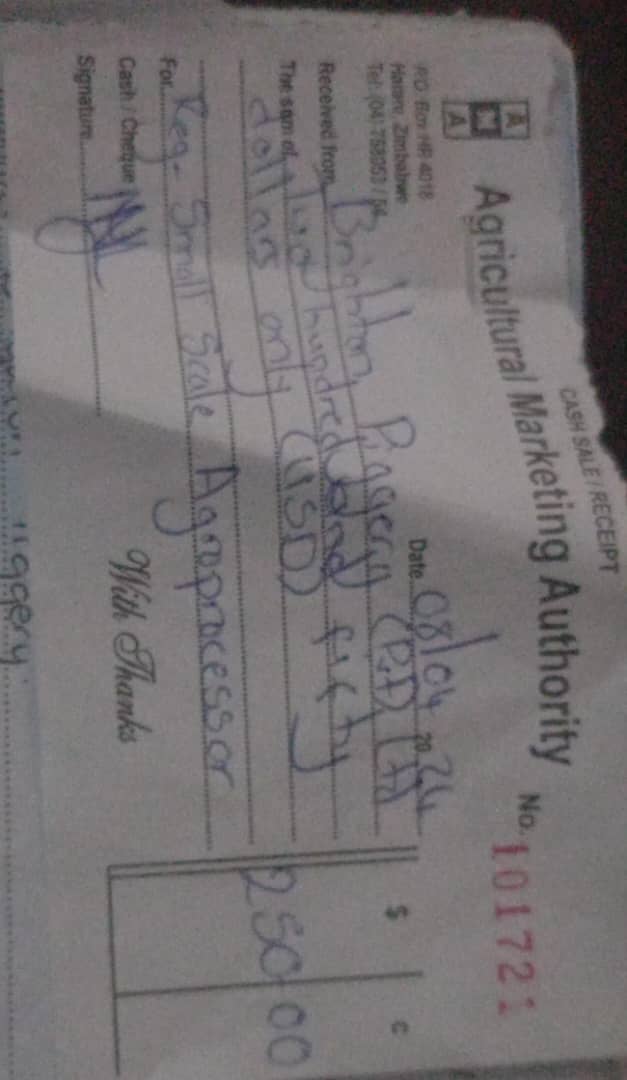 CASH SALE / RECEIPT
A
M
A
Agricultural Marketing Authority
No. 101721
P.O. Box HR 4018
Harare, Zimbabwe
Tel: (04)
Date 08/04 2024
Received from Brighton Piggery (Pvt) Ltd
The sum of two hundred and fifty
dollars only (USD)
For Reg - Small Scale Agroprocessor
$ c
250 00
Cash / Cheque
Signature
With Thanks